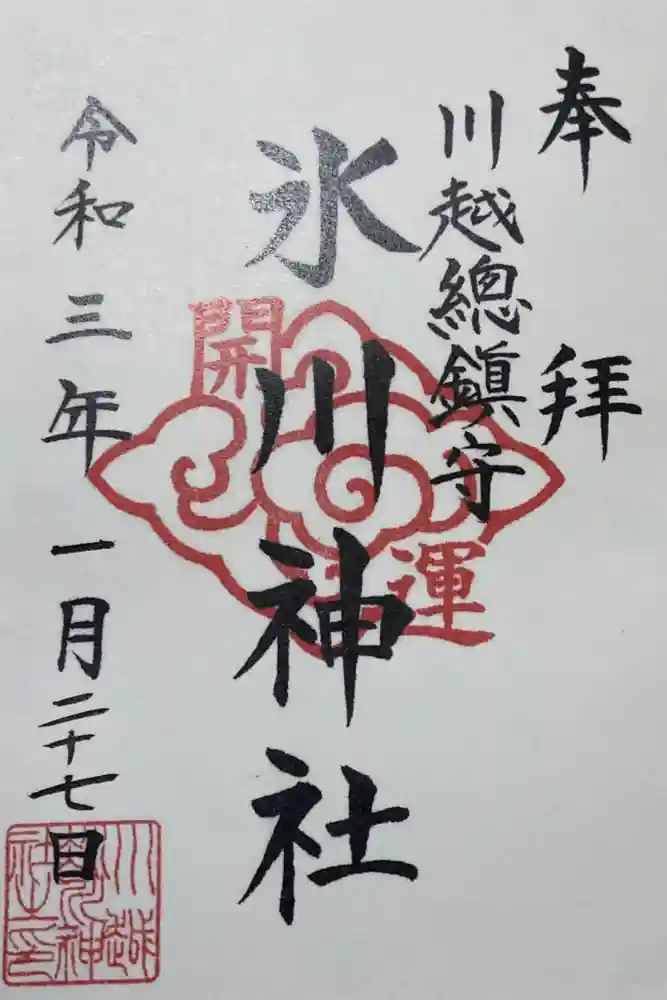 奉拝
川越總鎮守
氷川神社
開運
令和三年一月二十七日
川越
氷川神
社之印